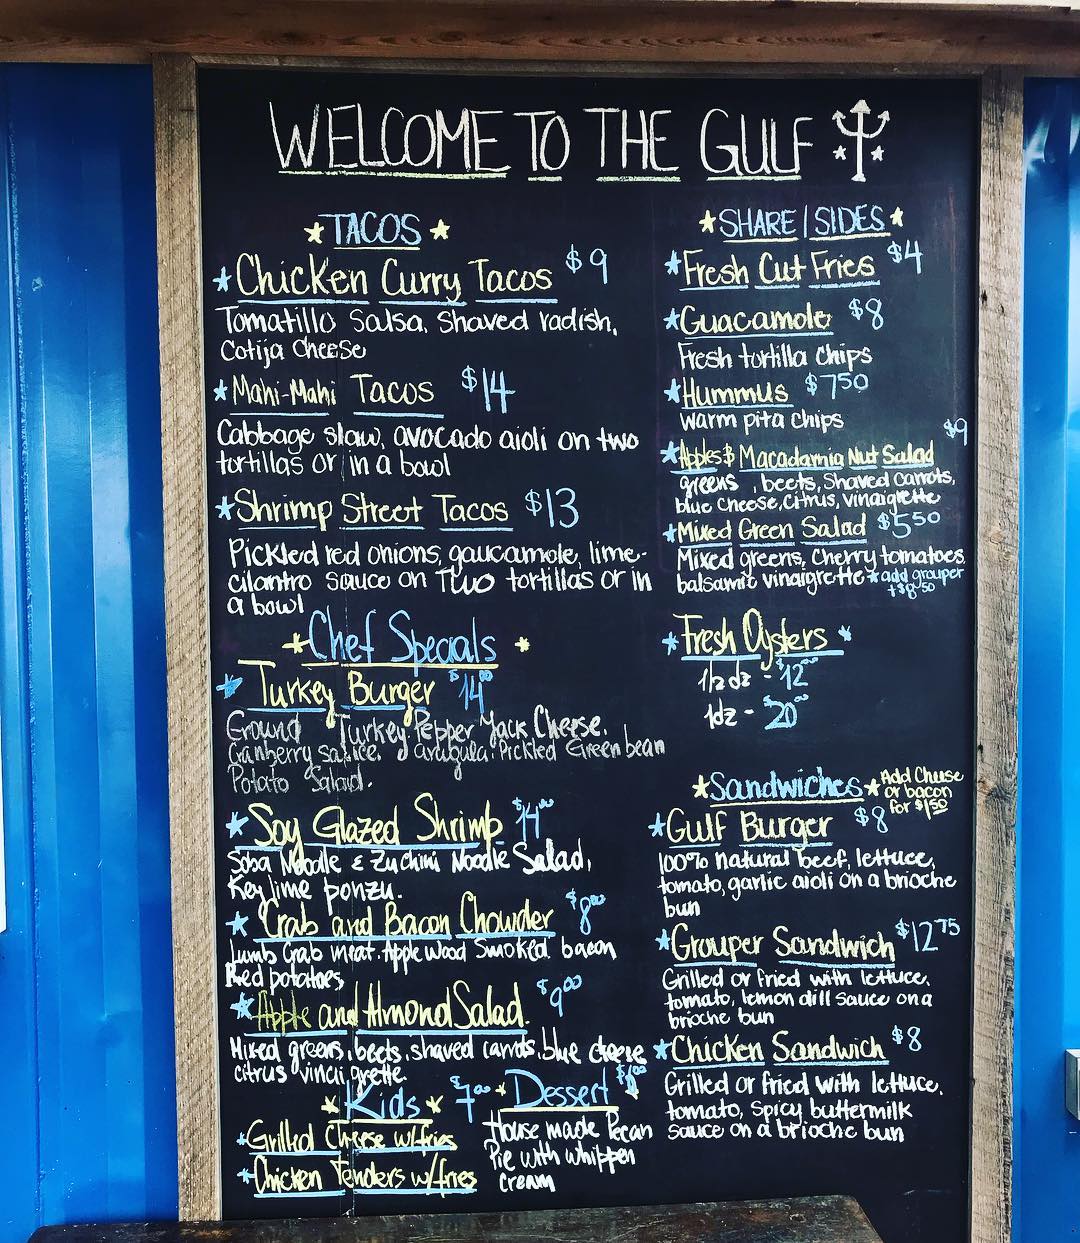 WELCOME TO THE GULF
TACOS
Chicken Curry Tacos $9
Tomatillo Salsa, Shaved radish,
Cotija Cheese
Mahi-Mahi Tacos $14
Cabbage slaw, avocado aioli on two
tortillas or in a bowl
Shrimp Street Tacos $13
Pickled red onions, gaucamole, lime-
cilantro sauce on Two tortillas or in
a bowl
Chef Specials
Turkey Burger $14.00
Ground Turkey. Pepper Jack Cheese.
Cranberry sauce. arugula. Pickled Green bean
Potato Salad.
Soy Glazed Shrimp $14.00
Soba Noodle & Zuchini Noodle Salad,
Key lime ponzu.
Crab and Bacon Chowder $8.00
Jumb Crab meat. Apple wood Smoked bacon
Red potatoes
Apple and Almond Salad $9.00
Mixed greens, beets, shaved carrots, blue cheese
citrus vinaigrette.
Kids $7.00
Grilled Cheese w/fries
Chicken Tenders w/fries
Dessert
House made Pecan
Pie with whippen
cream
SHARE | SIDES
Fresh Cut Fries $4
Guacamole $8
Fresh tortilla chips
Hummus $7.50
warm pita chips
Apples & Macadamia Nut Salad $9
greens, beets, shaved carrots,
blue cheese, citrus, vinaigrette
Mixed Green Salad $5.50
Mixed greens, cherry tomatoes
balsamic vinaigrette add grouper
+$8.50
Fresh Oysters
1/2 dz - $12.00
1dz - $20.00
Sandwiches Add Cheese
or bacon
for $1.50
Gulf Burger $8
100% natural beef, lettuce,
tomato, garlic aioli on a brioche
bun
Grouper Sandwich $12.75
Grilled or fried with lettuce,
tomato, lemon dill sauce on a
brioche bun
Chicken Sandwich $8
Grilled or fried with lettuce,
tomato, spicy buttermilk
sauce on a brioche bun